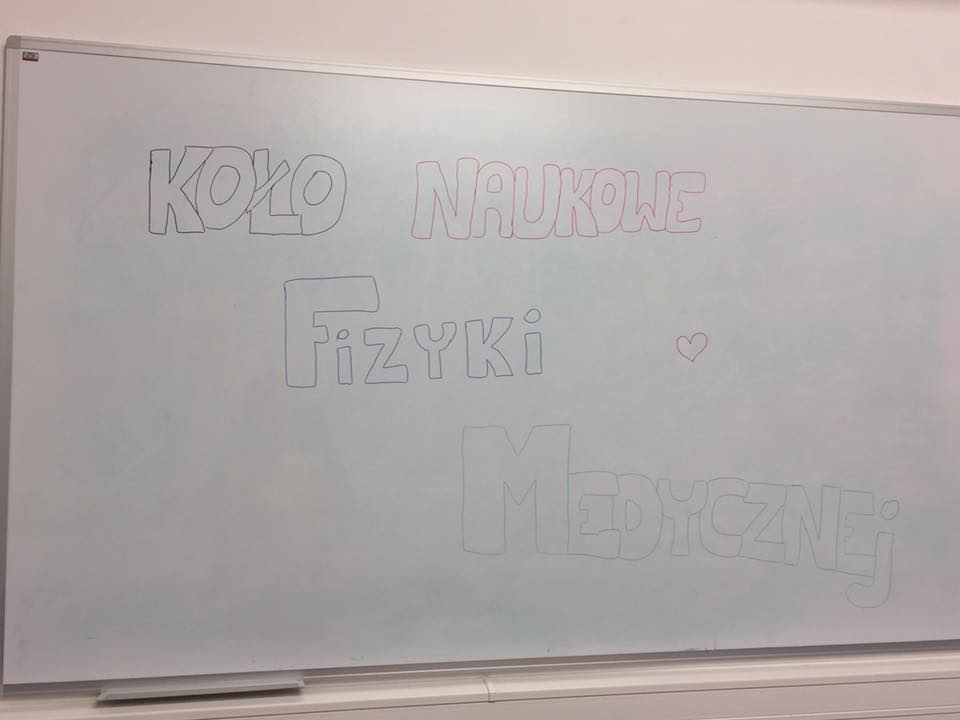 KOŁO NAUKOWE
FiZYKi
MEDYCZNEj